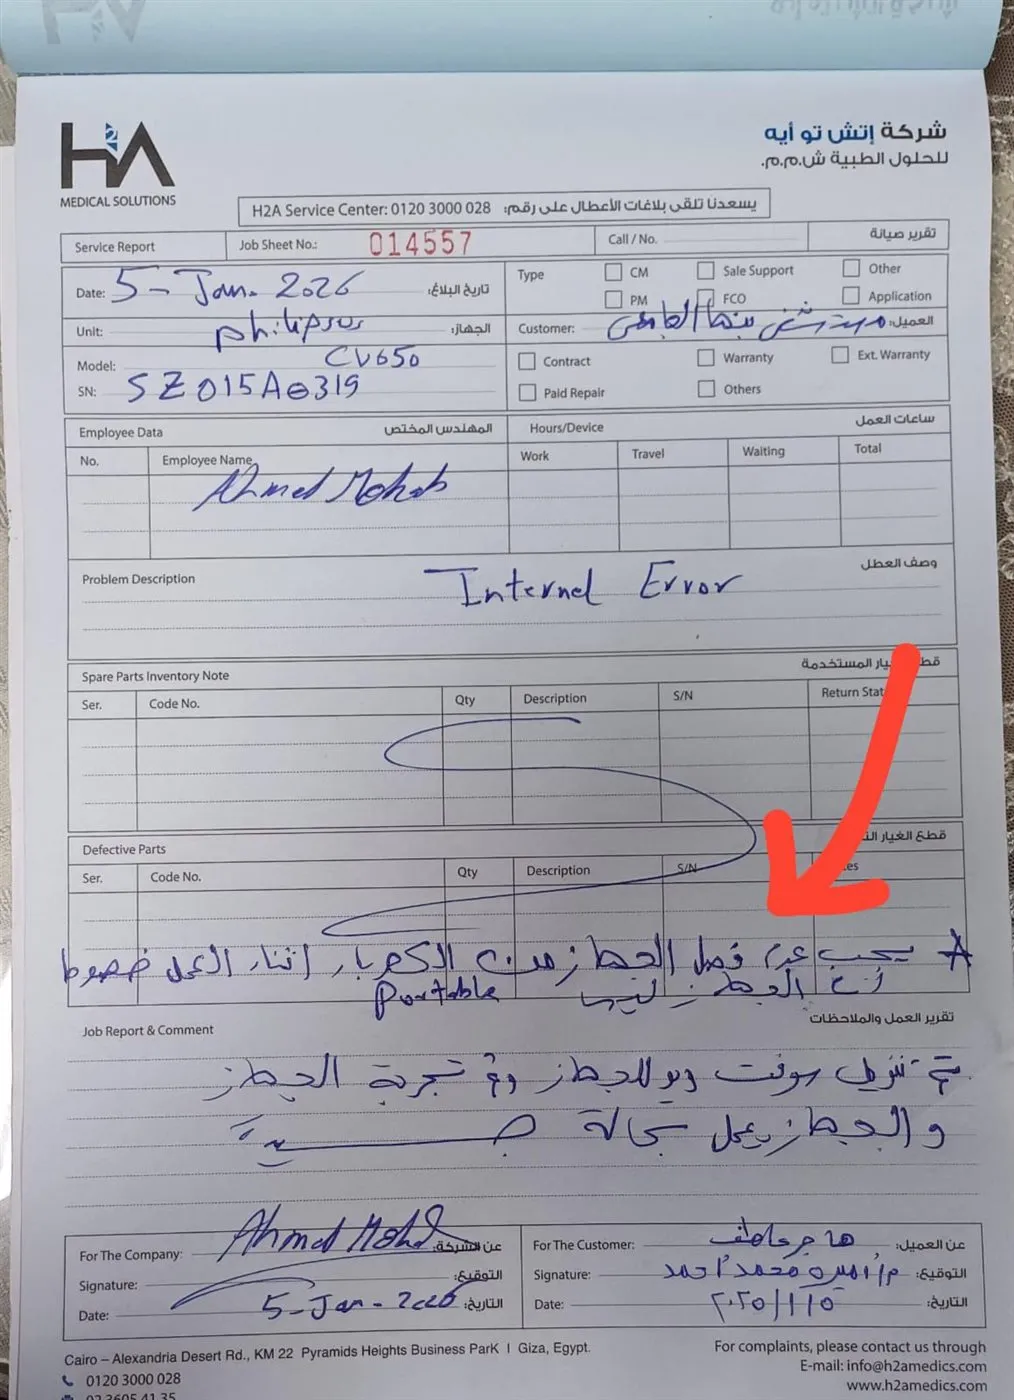 HA
MEDICAL SOLUTIONS
شركة إتش تو أيه
للحلول الطبية ش.م.م.
H2A Service Center: 0120 3000 028 يسعدنا تلقى بلاغات الأعطال على رقم:
Service Report
Job Sheet No.: 014557
Call / No.
تقرير صيانة
Date: 5 - Jan. 2026 تاريخ البلاغ:
Type
CM
Sale Support
Other
PM
FCO
Application
Unit: philips الجهاز:
Customer: مستشفى بنها الجامعى العميل:
Model: CV650
SN: SZ015A0319
Contract
Warranty
Ext. Warranty
Paid Repair
Others
Employee Data المهندس المختص
Hours/Device ساعات العمل
No.
Employee Name
Work
Travel
Waiting
Total
Ahmed Mohab
Problem Description وصف العطل
Internel Error
Spare Parts Inventory Note قطع الغيار المستخدمة
Ser.
Code No.
Qty
Description
S/N
Return Stat
Defective Parts قطع الغيار
Ser.
Code No.
Qty
Description
S/N
يجب عدم فصل الجهاز من الكهرباء اثناء العمل خصوصا
ان الجهاز ليس Portable
Job Report & Comment تقرير العمل والملاحظات
تم تنزيل سوفت وير للجهاز وتم تجربة الجهاز
والجهاز يعمل بحالة جيدة
For The Company: Ahmed عن الشركة:
Signature: التوقيع:
Date: 5-Jan-2026 التاريخ:
For The Customer: هاجر عاطف عن العميل:
Signature: م/ أميره محمد أحمد التوقيع:
Date: ٢٠٢٥/١/٥ التاريخ:
Cairo – Alexandria Desert Rd., KM 22 Pyramids Heights Business ParK I Giza, Egypt.
0120 3000 028
02 3605 41 35
For complaints, please contact us thraough
E-mail: info@h2amedics.com
www.h2amedics.com